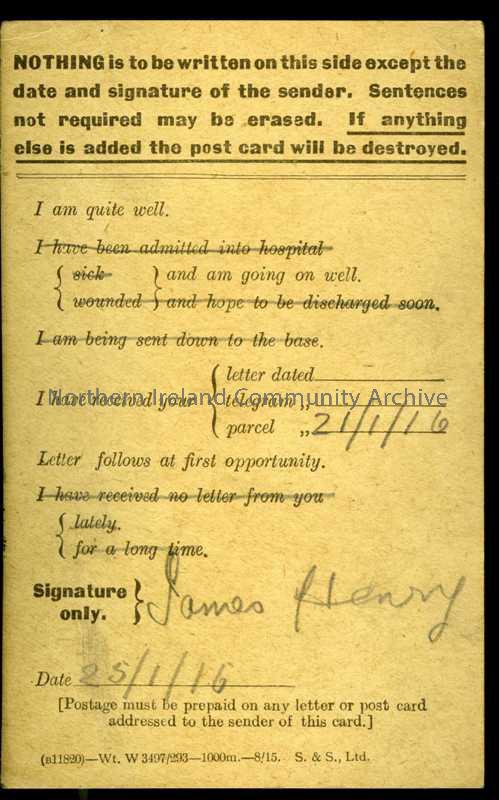 NOTHING is to be written on this side except the
date and signature of the sender. Sentences
not required may be erased. If anything
else is added the post card will be destroyed.
I am quite well.
I have been admitted into hospital
{ sick } and am going on well.
{ wounded } and hope to be discharged soon.
I am being sent down to the base.
letter dated
I have received your { telegram ,,
parcel ,, 21/1/16
Northern Ireland Community Archive
Letter follows at first opportunity.
I have received no letter from you
{ lately.
{ for a long time.
Signature
only. } James Henry
Date 25/1/16
[Postage must be prepaid on any letter or post card
addressed to the sender of this card.]
(B11820)—Wt. W 3497/293—1000m.—8/15. S. & S., Ltd.